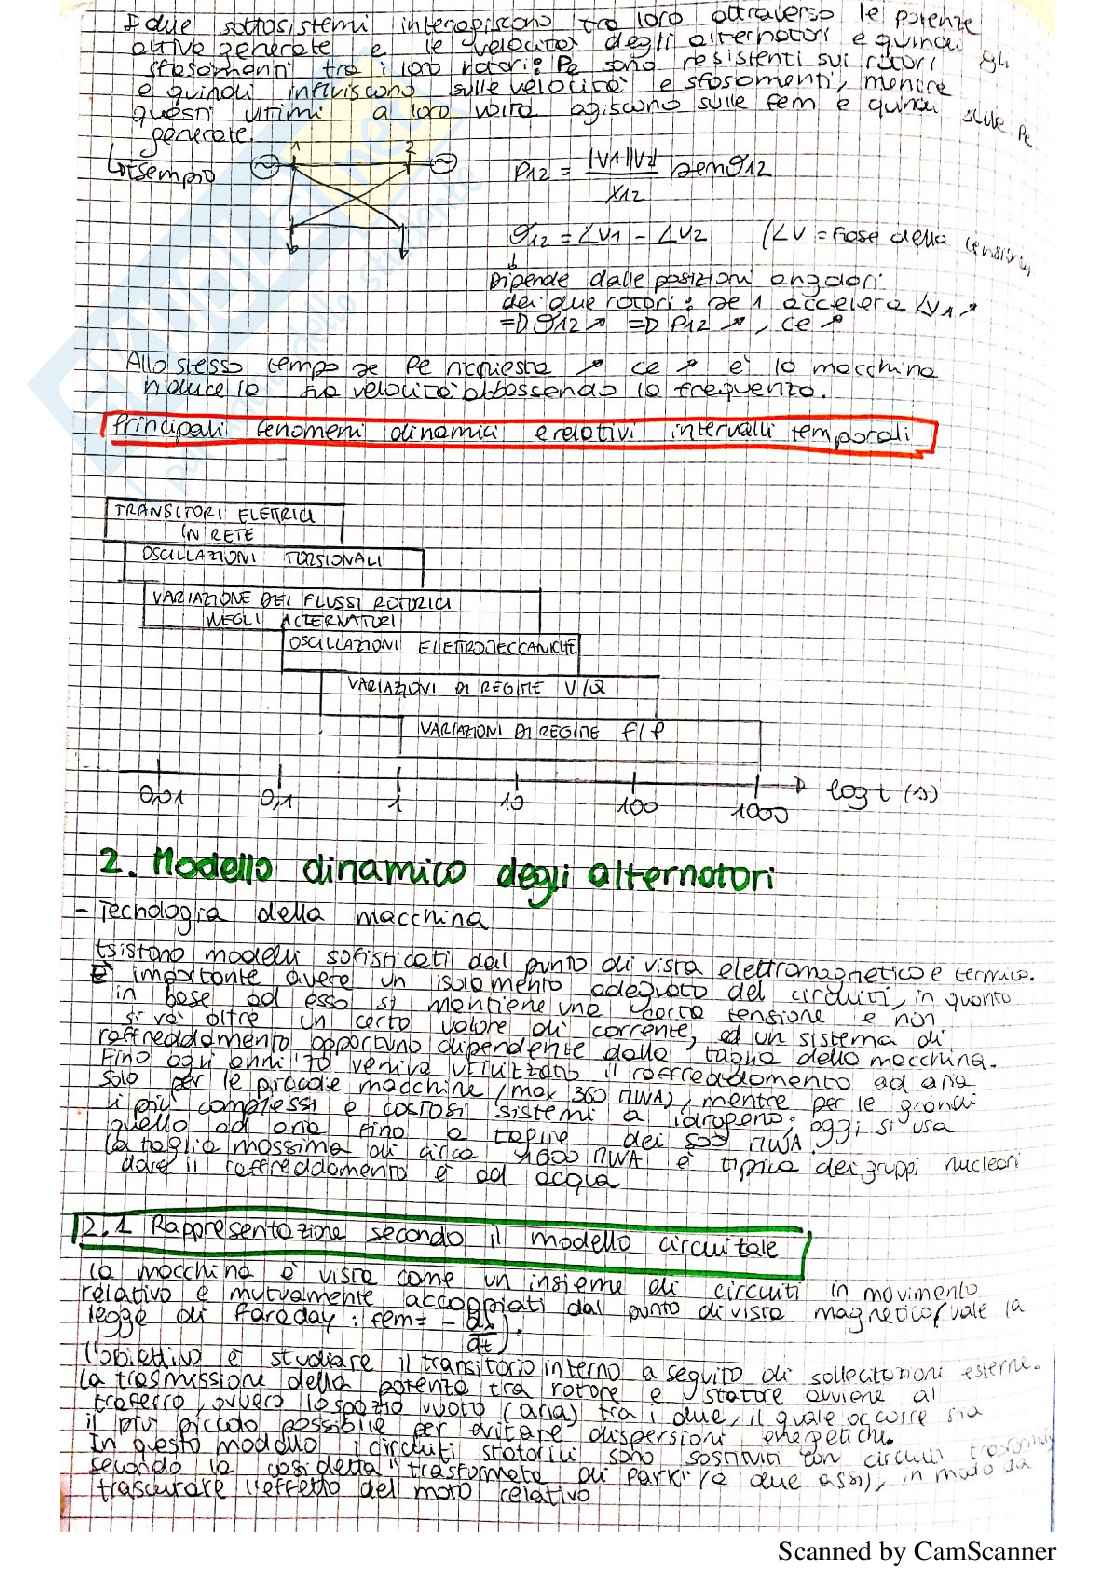 I due sottosistemi interagiscono tra loro attraverso le potenze
attive generate e le velocità degli alternatori e quindi gli
sfasamenti tra i loro rotori: Pe sono resistenti sui rotori
e quindi influiscono sulle velocità e sfasamenti, mentre
questi ultimi a loro volta agiscono sulle fem e quindi sulle Pe
generate.
Esempio
1 2
P12 = |V1||V2| / X12 sen ϑ12
ϑ12 = ∠V1 - ∠V2 (∠V = fase della tensione)
Dipende dalle posizioni angolari
dei due rotori: se 1 accelera ∠V1 ↗
=D ϑ12 ↗ =D P12 ↗, Ce ↗
Allo stesso tempo se Pe richiesta ↗ Ce ↗ e la macchina
riduce la velocità abbassando la frequenza.
Principali fenomeni dinamici e relativi intervalli temporali
TRANSITORI ELETTRICI
IN RETE
OSCILLAZIONI TORSIONALI
VARIAZIONE DEI FLUSSI ROTORICI
NEGLI ALTERNATORI
OSCILLAZIONI ELETTROMECCANICHE
VARIAZIONI DI REGIME V/Q
VARIAZIONI DI REGIME f/P
0,01 0,1 1 10 100 1000 log t (s)
2. Modello dinamico degli alternatori
- Tecnologia della macchina
Esistono modelli sofisticati dal punto di vista elettromagnetico e termico.
È importante avere un isolamento adeguato dei circuiti, in quanto
in base ad esso si mantiene una certa tensione e non
si va oltre un certo valore di corrente, ed un sistema di
raffreddamento opportuno dipendente dalla taglia della macchina.
Fino agli anni '70 veniva utilizzato il raffreddamento ad aria
solo per le piccole macchine (max 360 MVA), mentre per le grandi
i più complessi e costosi sistemi a idrogeno; oggi si usa
quello ad aria fino a taglie dei 500 MVA.
La taglia massima di circa 1600 MVA è tipica dei gruppi nucleari
dove il raffreddamento è ad acqua
2.1 Rappresentazione secondo il modello circuitale
La macchina è vista come un insieme di circuiti in movimento
relativo e mutuamente accoppiati dal punto di vista magnetico (vale la
legge di Faraday: fem = - dλ/dt).
L'obiettivo è studiare il transitorio interno a seguito di sollecitazioni esterne.
La trasmissione della potenza tra rotore e statore avviene al
traferro, ovvero lo spazio vuoto (aria) tra i due, il quale occorre sia
il più piccolo possibile per evitare dispersioni energetiche.
In questo modello i circuiti statorici sono sostituiti con circuiti
secondo la cosidetta "trasformata di Park" (a due assi), in modo da
trascurare l'effetto del moto relativo
Scanned by CamScanner